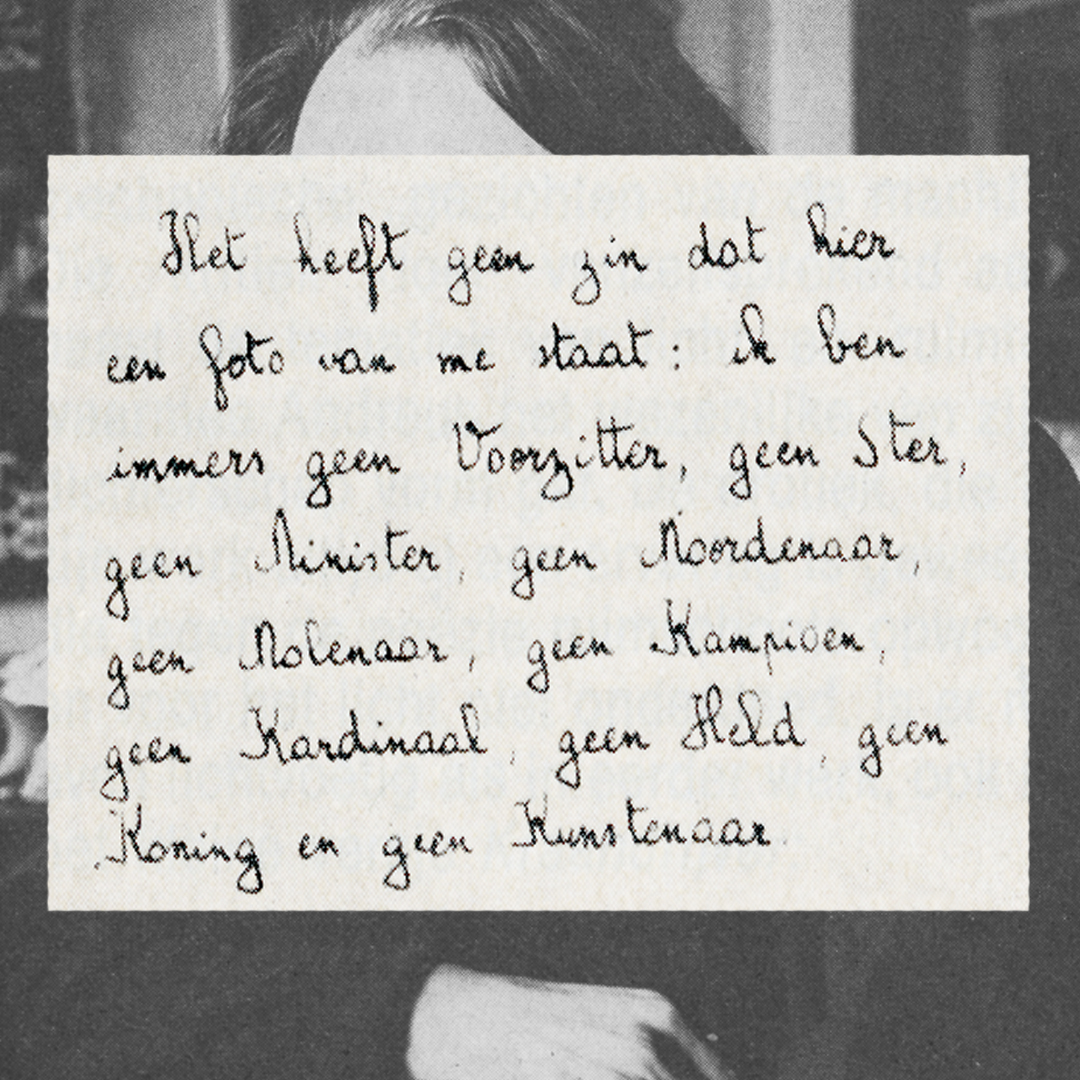 Het heeft geen zin dat hier
een foto van me staat: ik ben
immers geen Voorzitter, geen Ster,
geen Minister, geen Moordenaar,
geen Molenaar, geen Kampioen,
geen Kardinaal, geen Held, geen
Koning en geen Kunstenaar.